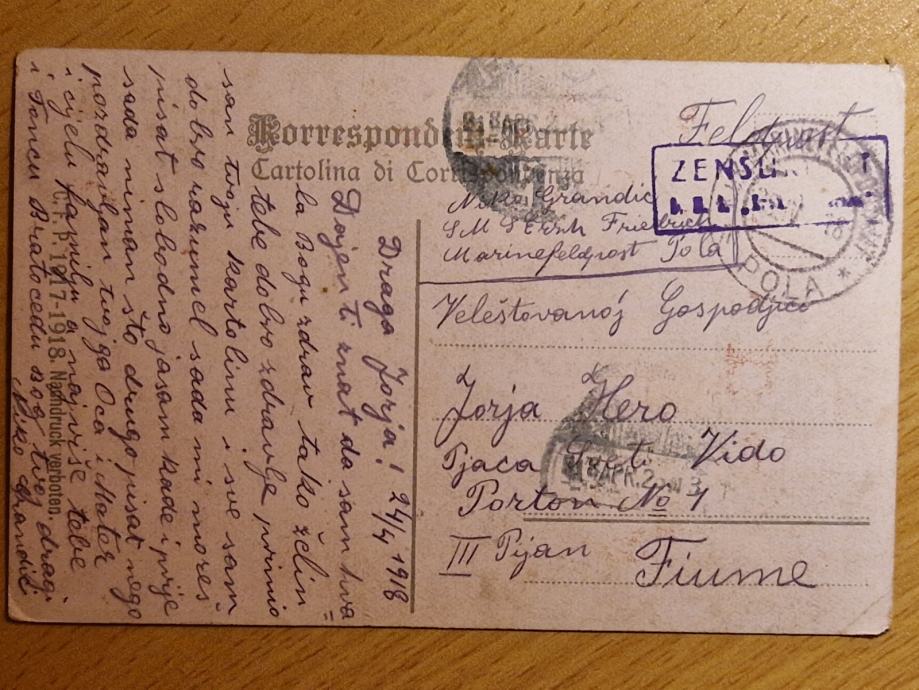 Korrespondenz-Karte
Cartolina di Corrispondenza
Feldpost
ZENSU
POLA
Miko Grandić
SMS Ersh Friedrich
Marinefeldpost Pola
Veleštovanoj Gospodjici
Jorja Hero
Pjaca Sveti Vido
Porton No 1
III Pijan Fiume
8 APR. 2
8 APR. 2
24/4 1918
Draga Jorja!
Dajen ti znat da san hva=
la Bogu zdrav tako želin
tebe dobro zdravlje primio
san tvoju kartolinu i sve sam
dobro razumel sada mi mores
pisat slobodno jasam kade i prije
sada niman što drugo pisat nego
pozdravljan tvojga Oca i Mater
i cijelu familju a najviše tebe
i Toncu Bratocedu zbog tvoj dragi
Miko Grandić
1917-1918. Nachdruck verboten.